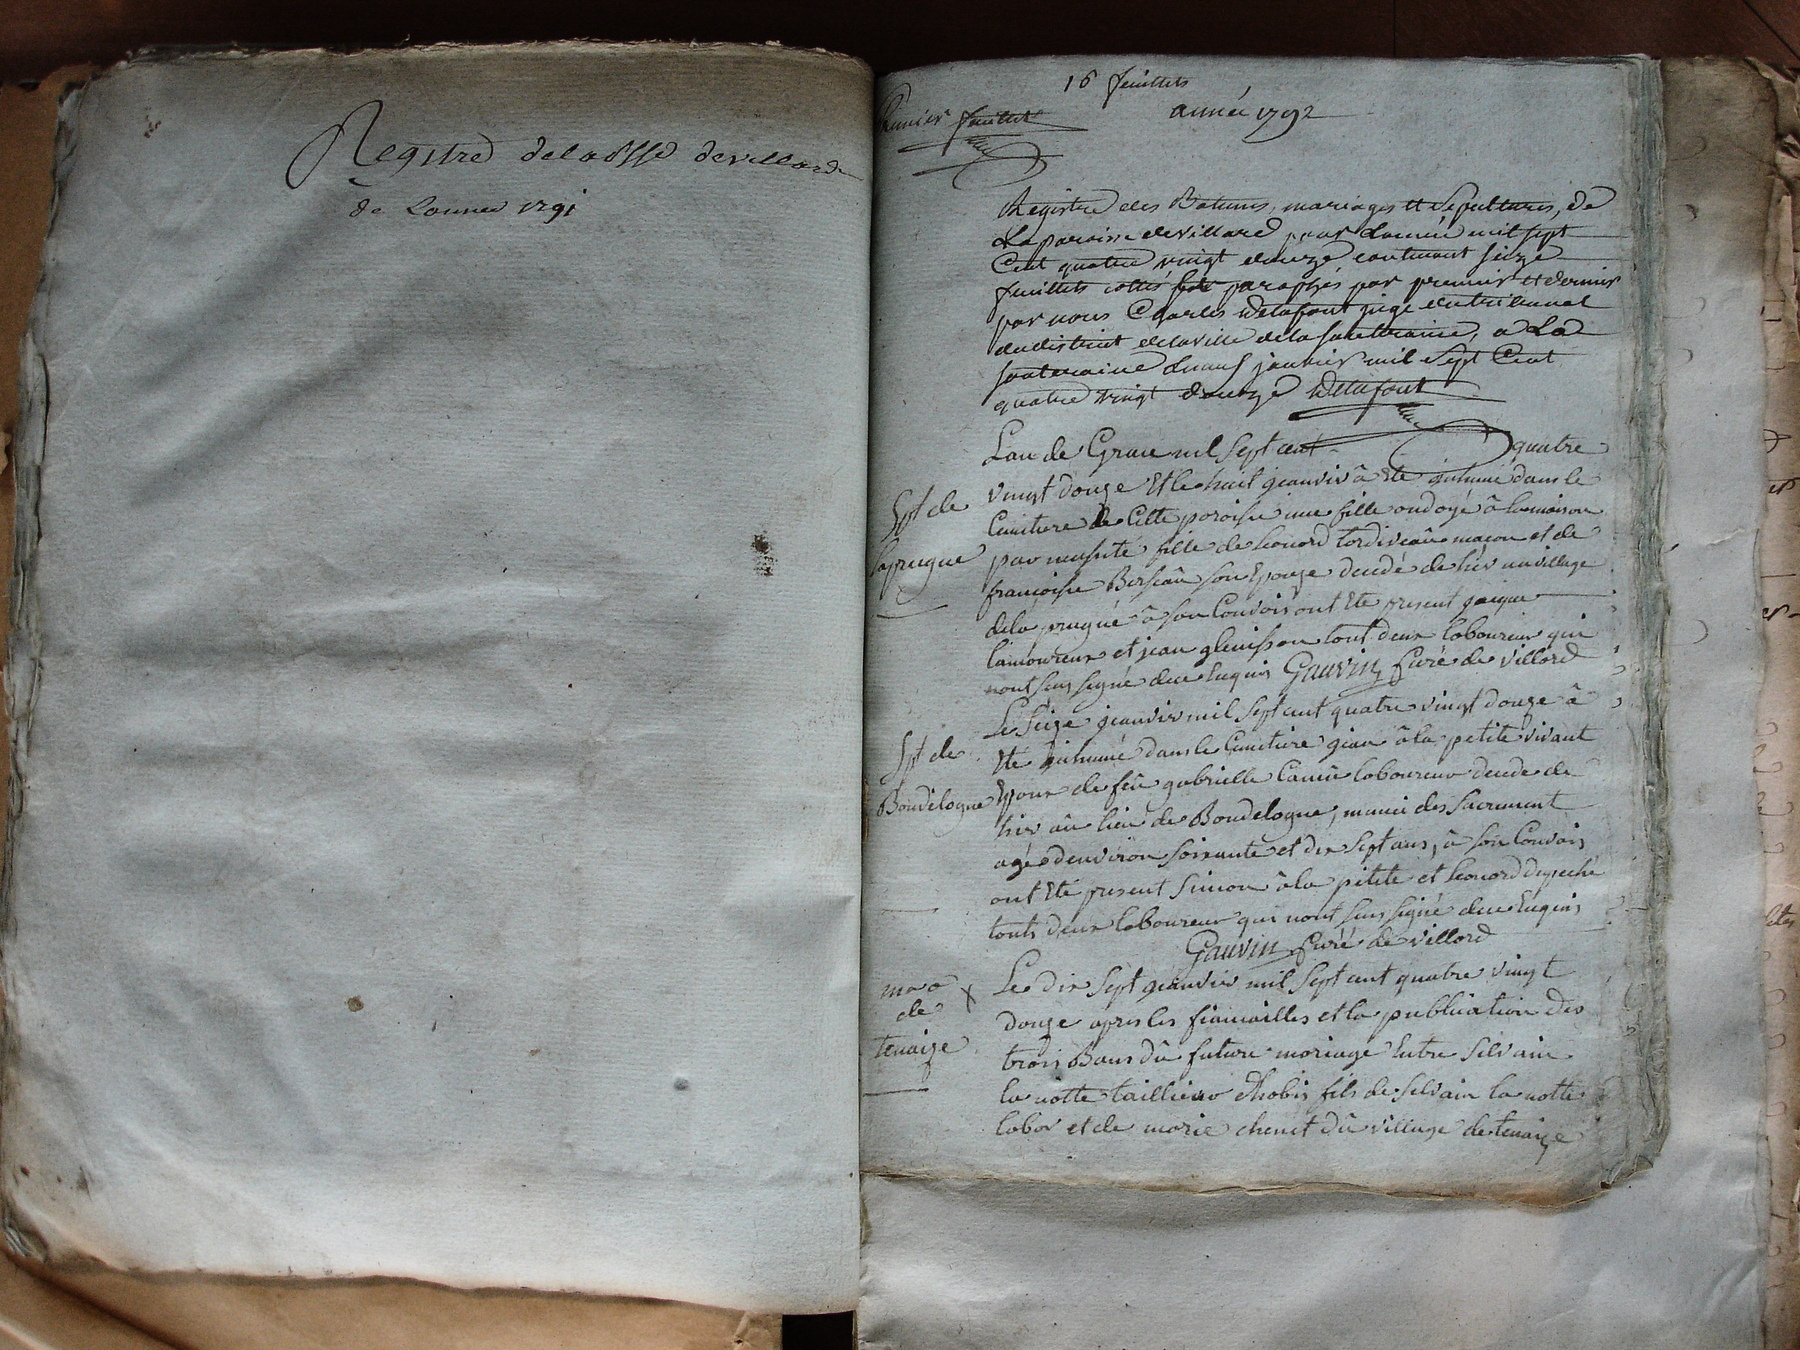 Registre de la psse de villard
de Lannee 1791
16 feuillets
Premier feuillet
année 1792
Registre des Batemes, mariages et sepultures, de
La paroisse de villard pour Lanneé mil sept
Cent quatre vingt douze contenant seize
feuillets cottés paraphés par premier et dernier
par nous Charles Delafont juge du tribunal
du district de la ville de la souterraine, a La
souterraine Lneuf janvier mil sept Cent
quatre vingt douze Delafont
Lan de Grace mil sept cent quatre
vingt douze Et le huit jeanvir â Ete inhumé dans le
Cemitiere de Cette paroisse une fille ondoyé â la maison
par necessité fille de leonord tordiveau maçon et de
françoise Berseau son Epouze decedé de hier au village
de la prugue â son Convois ont Ete present jaique
lamoureux et jean glenisson tout deux laboureur qui
nont seus signé deux Enquis Gauvin Curé de villard
Spt de
laprugue
Le seize jeanvir mil sept cent quatre vingt douze â
Ete inhumé dans le Cemitiere jean âla petite vivant
Epoux de feüe gabrielle lamie laboureur decede de
hier âu lieu de Boudelogne, munie des sacrement
agé denviron soixante et dix sept ans, â son Convois
ont Eté present Simon âla petite et leonord depeché
touts deux laboureur qui nont seus signé deux Enquis
Gauvin Curé de villard
Spt de
Boudelogne
Le dix sept jeanvir mil sept cent quatre vingt
douze apres les fiancailles et la publication des
trois Bans dû future mariage Entre silvain
la notte taillieur dhabis fils de silvain la notte
labor et de marie chenet dû village de tenaize
mar
de
tenaize